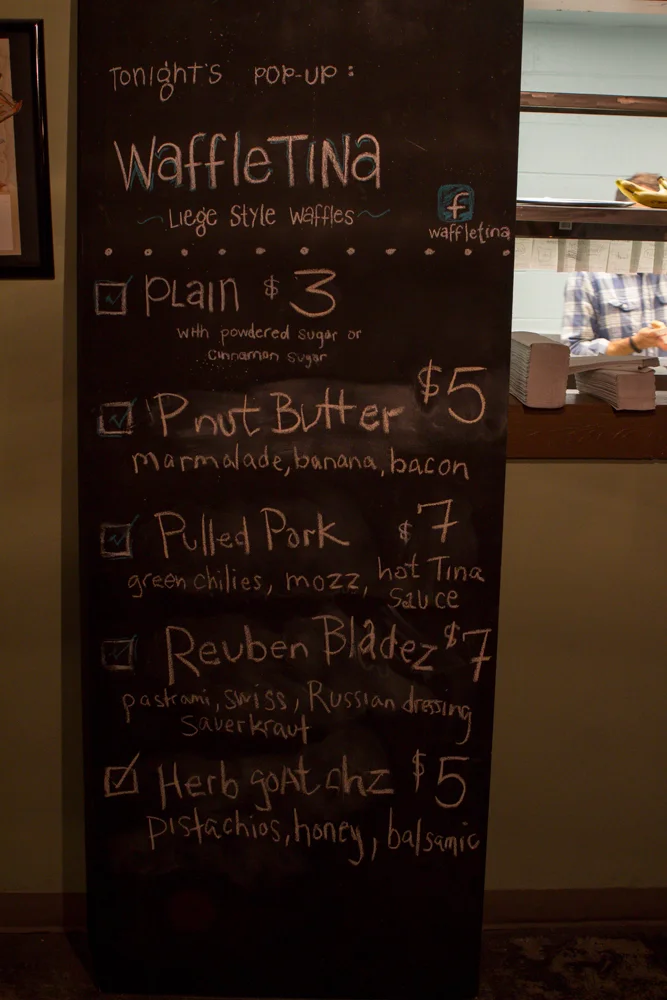 Tonight's Pop-up:
WaffleTINa
~Liege Style Waffles~
f
waffletina
Plain $3
with powdered sugar or
Cinnamon sugar
Pnut Butter $5
marmalade, banana, bacon
Pulled Pork $7
green chilies, mozz, hot Tina
Sauce
Reuben Bladez $7
pastrami, swiss, Russian dressing
Sauerkraut
Herb goat chz $5
pistachios, honey, balsamic